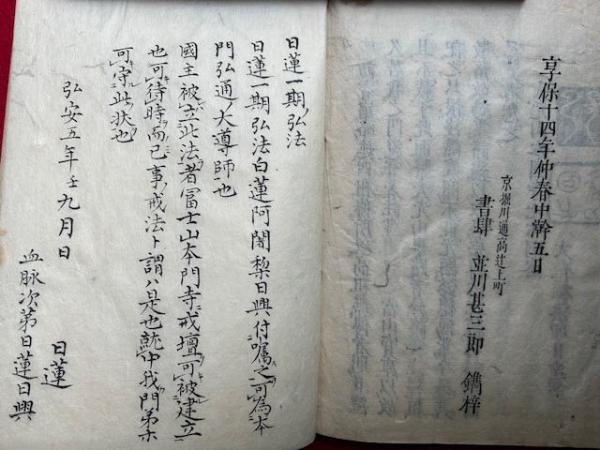 享保十四年仲春中澣五日
京堀川通高辻上町
書肆 並川甚三郎 鐫梓
日蓮一期弘法
日蓮一期弘法白蓮阿闍梨日興付嘱之可為本
門弘通大導師也
國主被立此法者冨士山本門寺戒壇可被建立
也可待時而已事戒法ト謂ハ是也就中我門弟
可守此状也
弘安五年壬九月日
日蓮
血脈次第日蓮日興